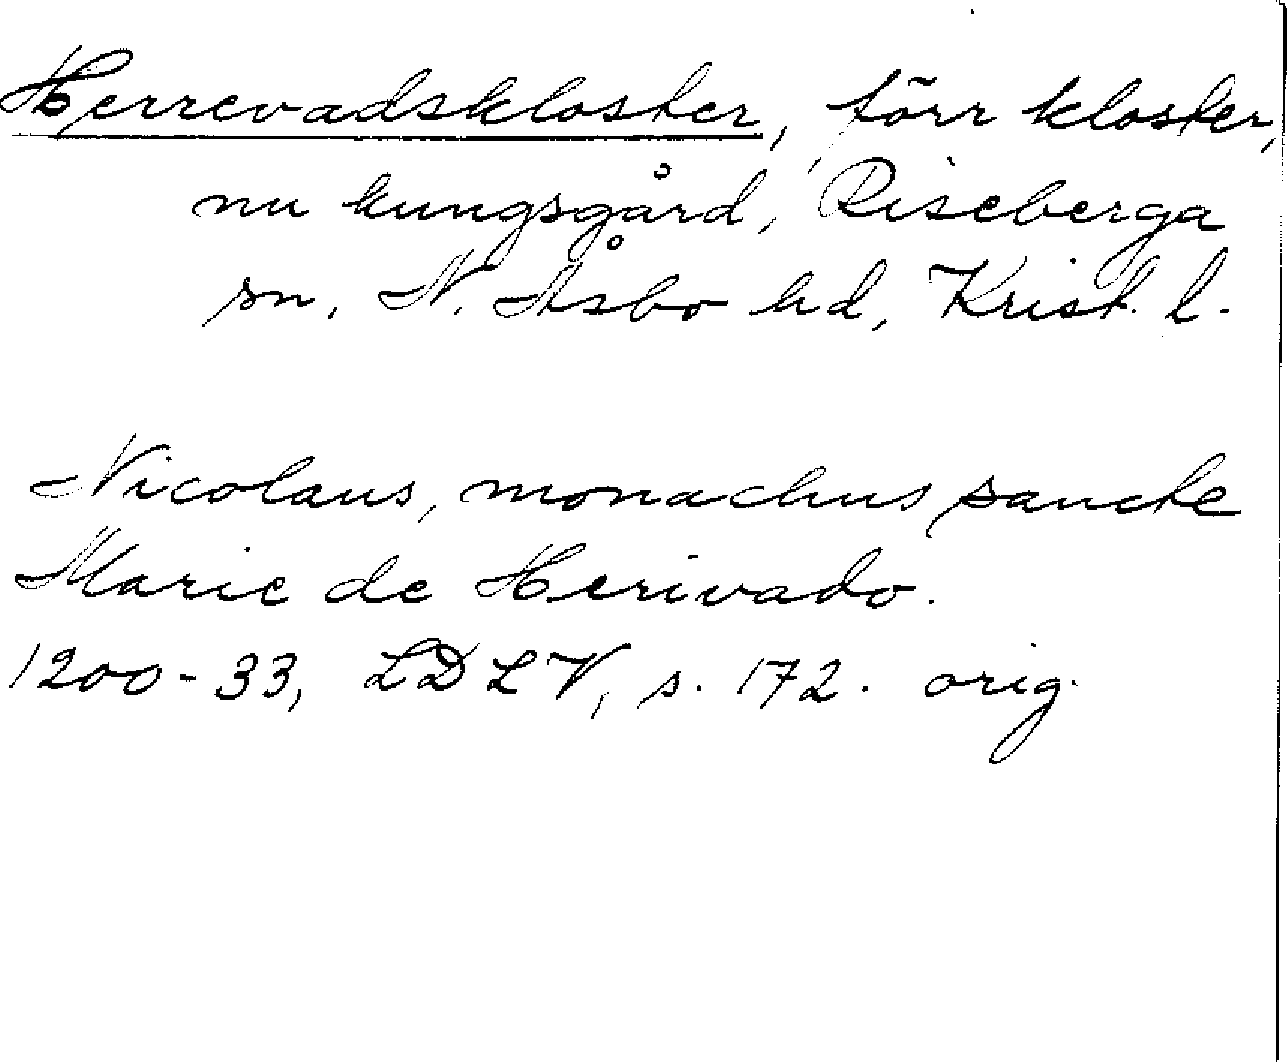 Herrevadskloster, förr kloster,
nu kungsgård, Riseberga
sn, N. Åsbo hd, Krist. l.
Nicolaus, monachus sancte
Marie de Herivado.
1200-33, LDLV, s. 172. orig.